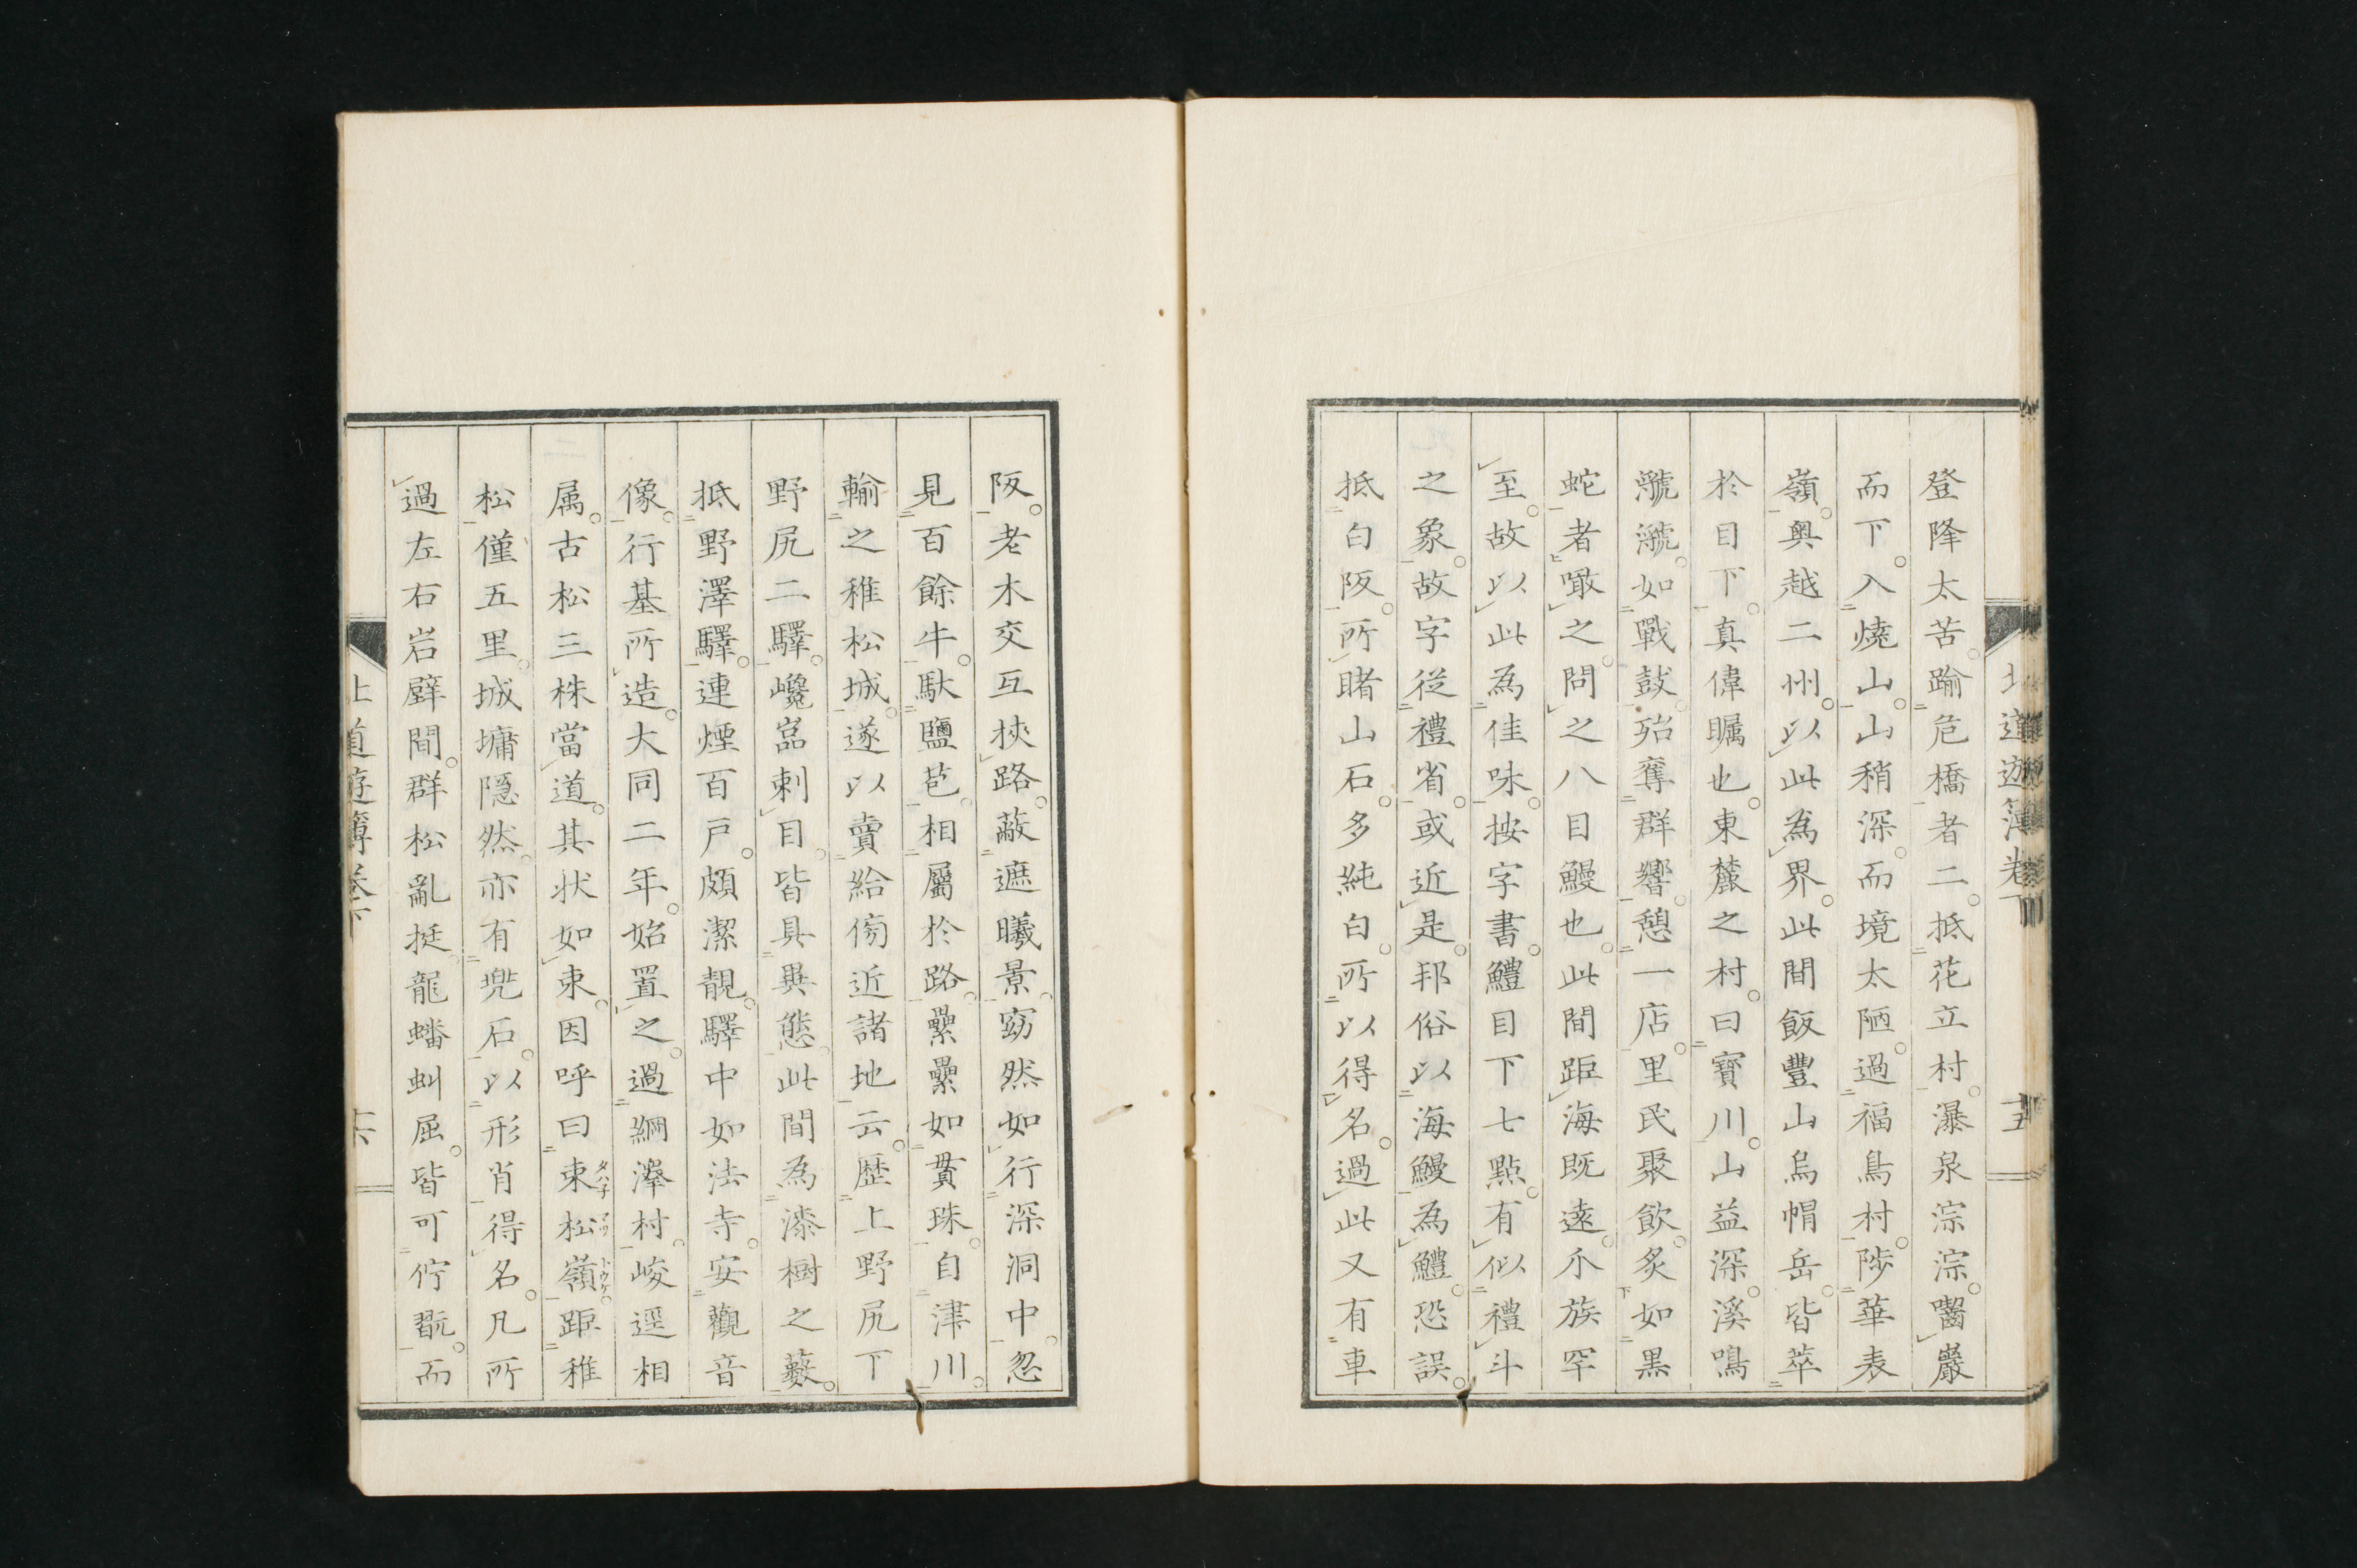 登降太苦。踰危橋者二。抵花立村。瀑泉淙淙。嚙巖
而下。入燒山。山稍深。而境太陋。過福鳥村。陟華表
嶺。奥越二州。以此為界。此間飯豐山烏帽岳。皆萃
於目下。真偉矚也。東麓之村。曰寶川。山益深。溪鳴
瀧瀧。如戰鼓。殆奪群響。憩一店。里民聚飲。炙如黒
蛇者噉之。問之八目鰻也。此間距海既遠。尒族罕
至。故以此為佳味。按字書。鱧目下七點。有似禮斗
之象。故字從禮省。或近是。邦俗以海鰻為鱧。恐誤。
抵白阪。所睹山石。多純白。所以得名。過此又有車
北道遊簿卷下
十五
阪。老木交互挾路。蔽遮曦景。窈然如行深洞中。忽
見百餘牛。馱鹽苞。相屬於路。纍纍如貫珠。自津川。
輸之稚松城。遂以賣給傍近諸地云。歴上野尻下
野尻二驛。巉嵓刺目。皆具異態。此間為漆樹之藪。
抵野澤驛。連煙百戸。頗潔靚。驛中如法寺。安觀音
像。行基所造。大同二年。始置之。過綱澤村。峻逕相
属。古松三株當道。其状如束。因呼曰束松嶺。距稚
タハ子マツトウゲ
松僅五里。城墉隠然。亦有兠石。以形肖得名。凡所
過左右岩壁間。群松亂挺。龍蟠虯屈。皆可佇翫。而
北道遊簿卷下
十六